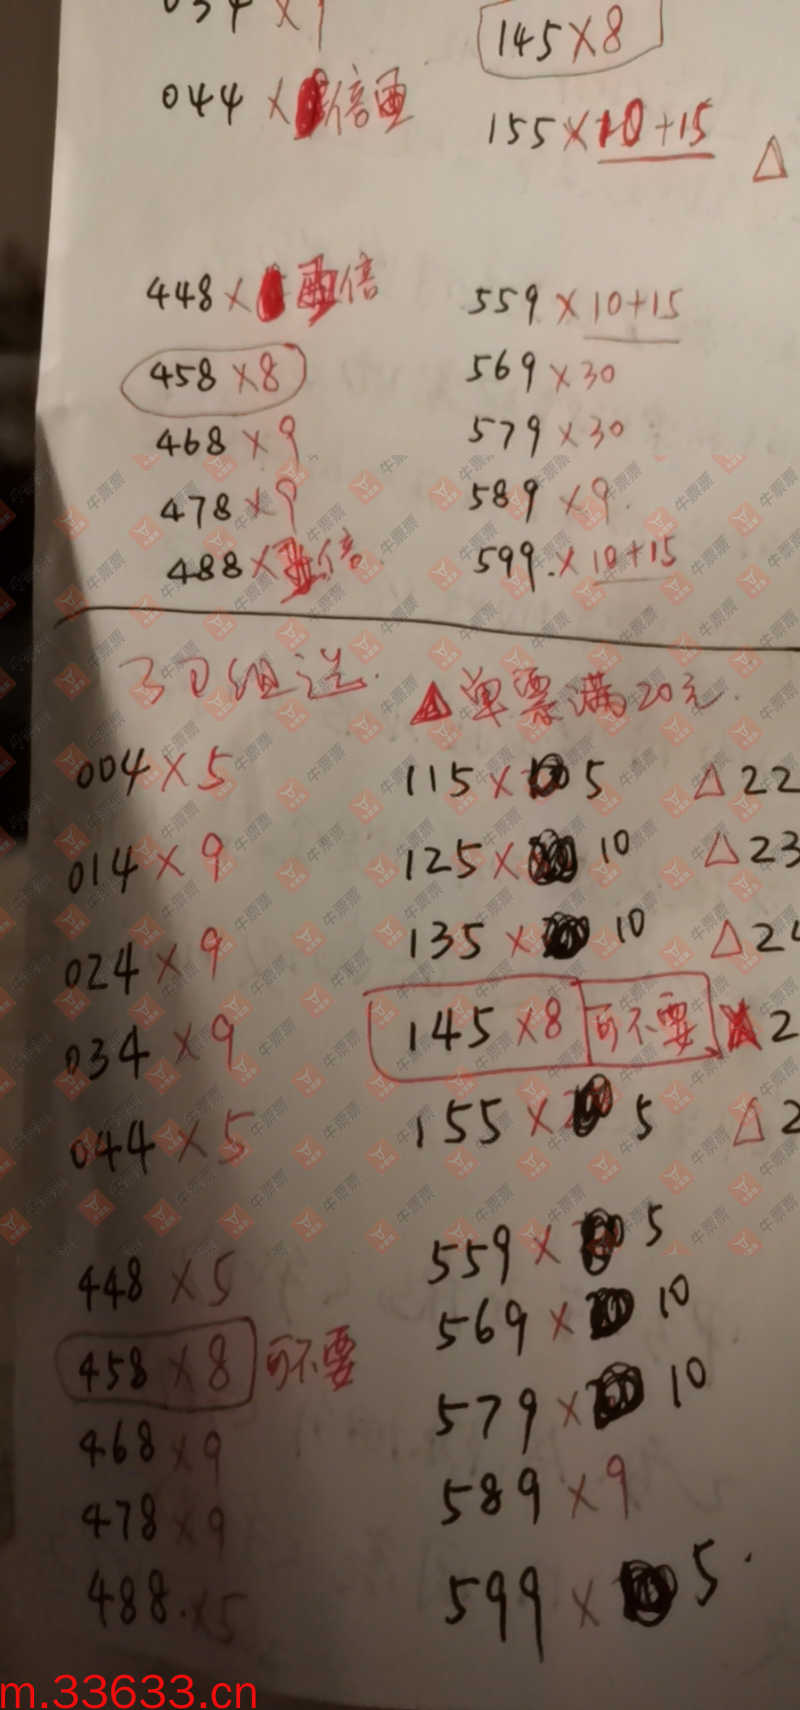 034 × 9
145 × 8
044 × 倍
155 × 10+15
△
448 × 倍
559 × 10+15
458 × 8
569 × 30
468 × 9
579 × 30
478 × 9
589 × 9
488 × 倍
599. × 10+15
3D组选.
△单票满20元.
004 × 5
115 × 5
△22
014 × 9
125 × 10
△23
024 × 9
135 × 10
△24
034 × 9
145 × 8 可不要
2
044 × 5
155 × 5
△2
448 × 5
559 × 5
458 × 8 可不要
569 × 10
468 × 9
579 × 10
478 × 9
589 × 9
488. × 5
599 × 5.
牛票票
m.33633.cn